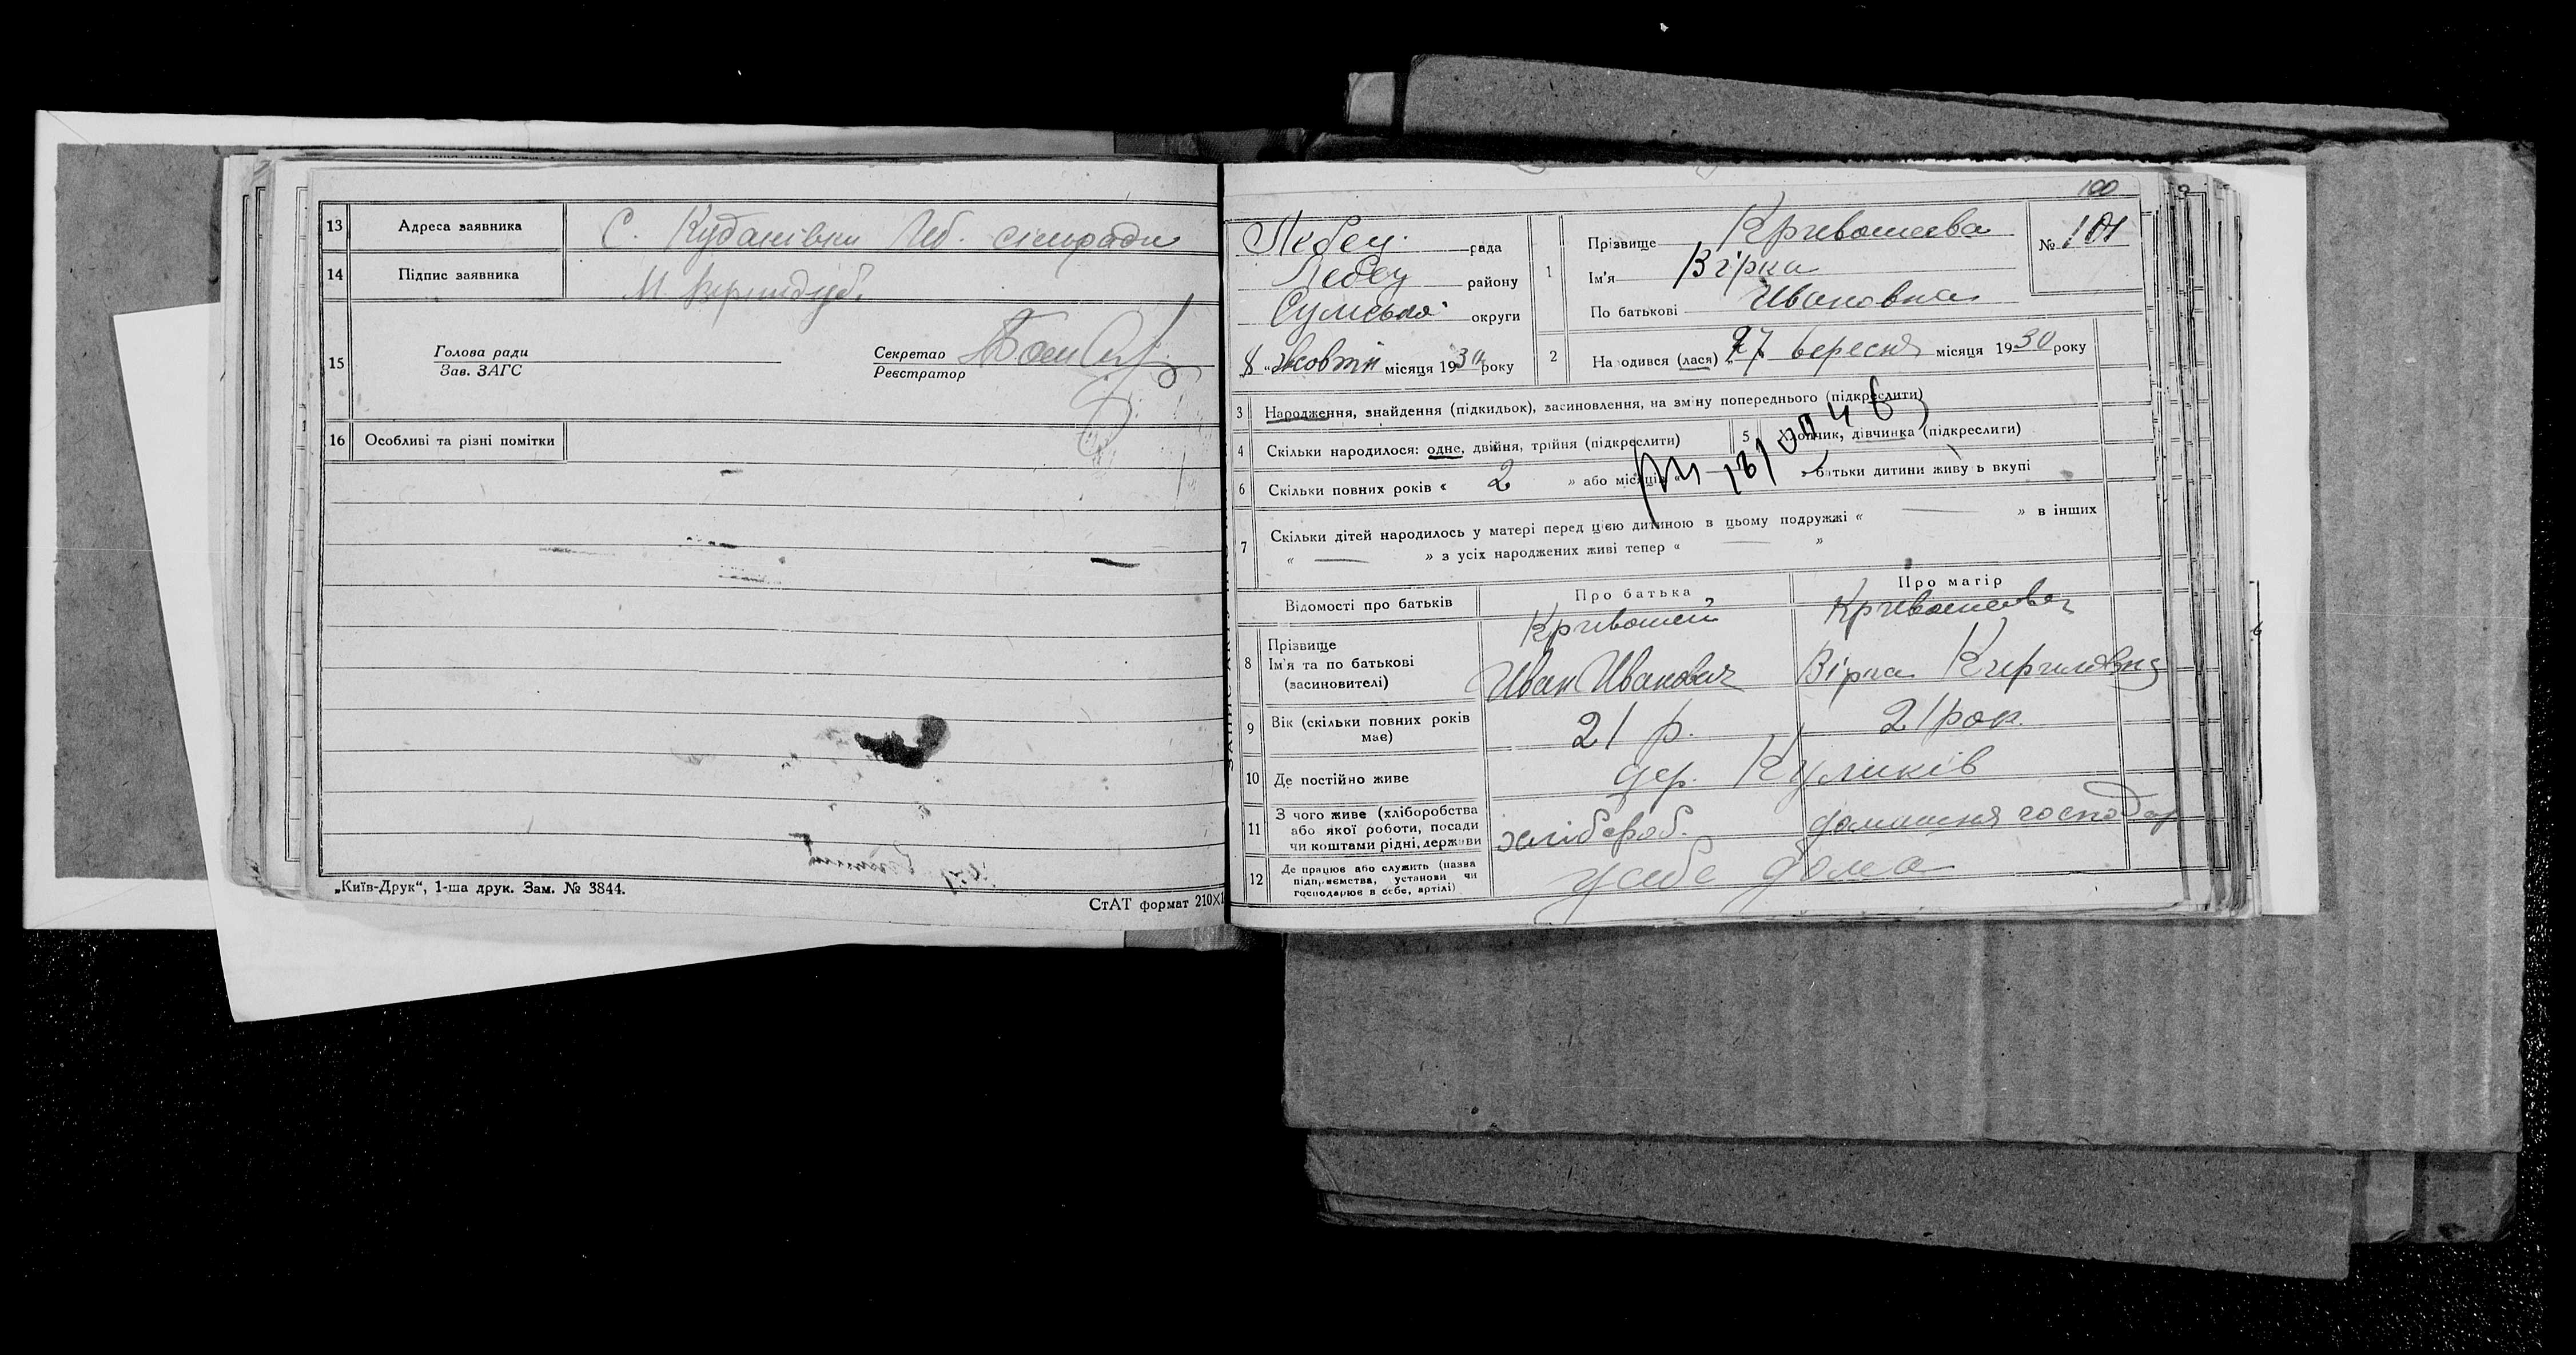 13 Адреса заявника С. Кудаківки Леб. сільради
14 Підпис заявника М.
15 Голова ради Секретар
Зав. ЗАГС Реєстратор
16 Особливі та різні помітки
„Київ-Друк“, 1-ша друк. Зам. № 3844.
СтАТ формат 210×1
100
Лебед. рада
Лебед району
Сумської округи
8 „ жовтн місяця 1930 року
1 Прізвище Кривошеєва
Ім'я Вірка
По батькові Ивановна
№ 101
2 Народився (лася) „27 вересня місяця 1930 року
3 Народження, знайдення (підкидьок), засиновлення, на зміну попереднього (підкреслити)
4 Скільки народилося: одне, двійня, трійня (підкреслити)
5 Хлопчик, дівчинка (підкреслити)
6 Скільки повних років « 2 » або місяців « » батьки дитини живуть вкупі
7 Скільки дітей народилось у матері перед цією дитиною в цьому подружжі « — » в інших
« — » з усіх народжених живі тепер « — »
Відомості про батьків Про батька Про матір
8 Прізвище Кривошей Кривошеева
Ім'я та по батькові Иван Иванович Вірка Кириловна
(засиновителі)
9 Вік (скільки повних років має) 21 р. 21 рок.
10 Де постійно живе дер. Куликів
11 З чого живе (хліборобства
або якої роботи, посади
чи коштами рідні, держави хлібороб. домашня господар
12 Де працює або служить (назва
підприємства, установи чи
господарює в себе, артілі) у себе дома